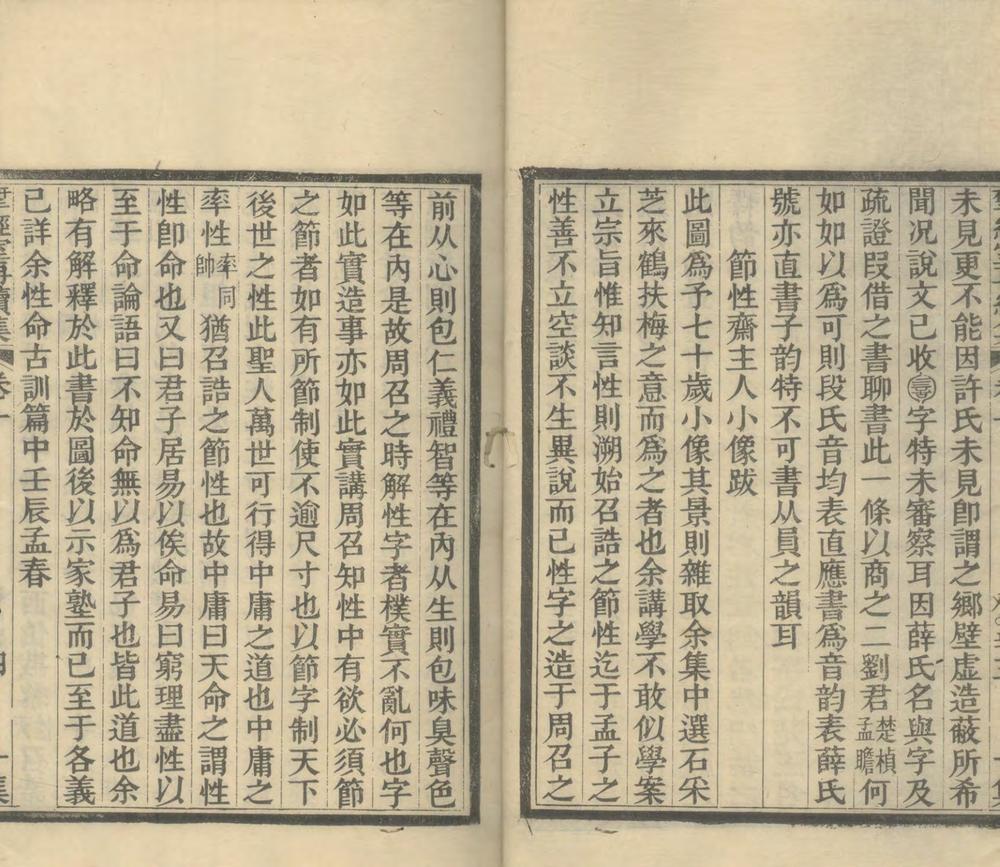 未見更不能因許氏未見卽謂之鄉壁虛造蔽所希
聞况說文已收字特未審察耳因薛氏名與字及
疏證叚借之書聊書此一條以商之二劉君楚楨孟瞻何
如如以爲可則段氏音均表直應書爲音韵表薛氏
號亦直書子韵特不可書从員之韻耳
節性齋主人小像跋
此圖爲予七十歲小像其景則雜取余集中選石采
芝來鶴扶梅之意而爲之者也余講學不敢似學案
立宗旨惟知言性則溯始召誥之節性迄于孟子之
性善不立空談不生異說而已性字之造于周召之
前从心則包仁義禮智等在內从生則包味臭聲色
等在內是故周召之時解性字者樸實不亂何也字
如此實造事亦如此實講周召知性中有欲必須節
之節者如有所節制使不逾尺寸也以節字制天下
後世之性此聖人萬世可行得中庸之道也中庸之
率性率同帥猶召誥之節性也故中庸曰天命之謂性
性卽命也又曰君子居易以俟命易曰窮理盡性以
至于命論語曰不知命無以爲君子也皆此道也余
略有解釋於此書於圖後以示家塾而已至于各義
已詳余性命古訓篇中壬辰孟春
揅經室再續集 卷一